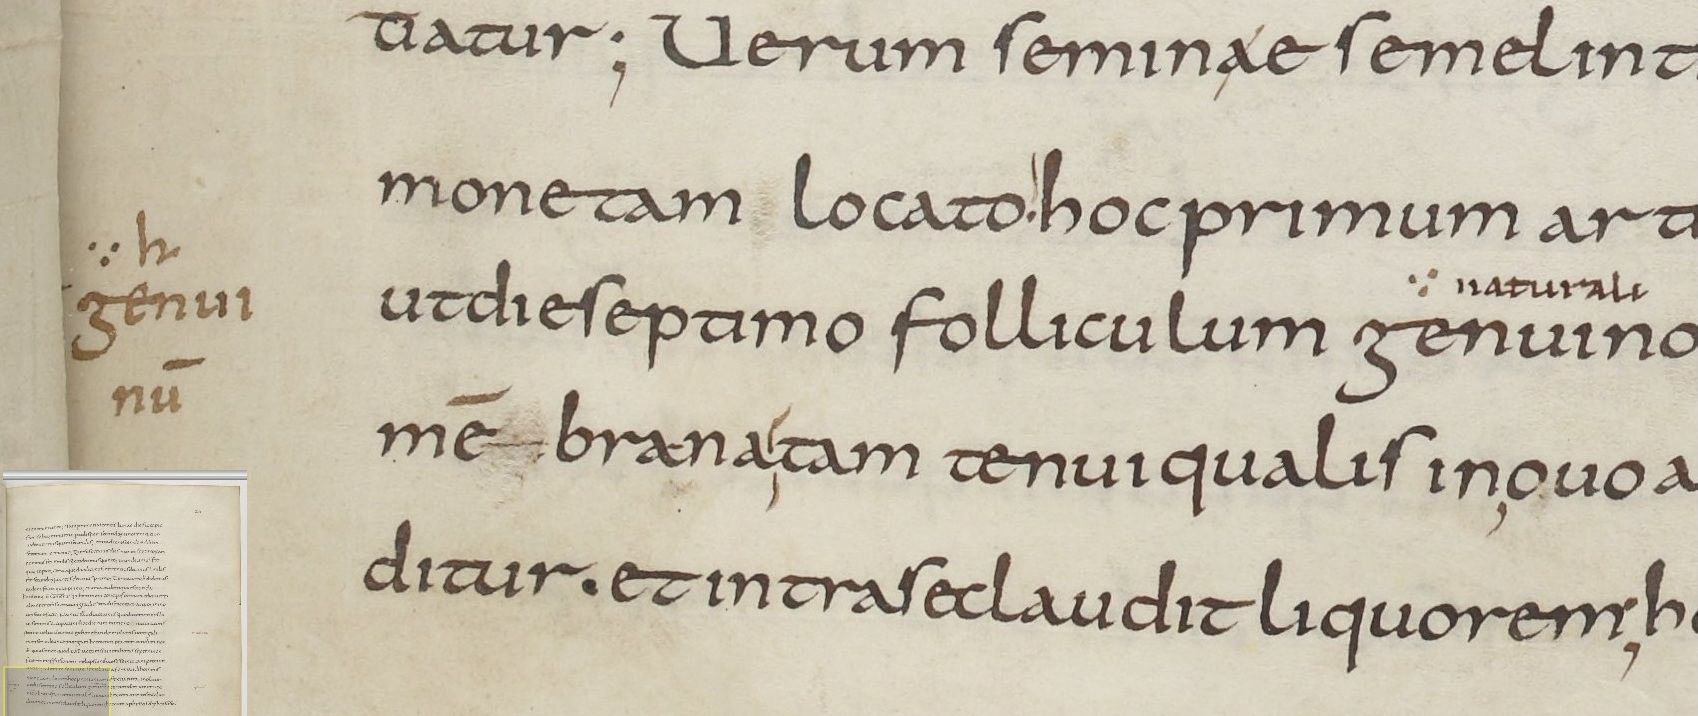 tiatur; Uerum seminae semel int
monetam locato. hoc primum arti
ut die septimo folliculum genuino
∵ naturali
mē branatam tenui qualis in ouo a
ditur. et intra se claudit liquorem, ho
∵ h
genui
nū